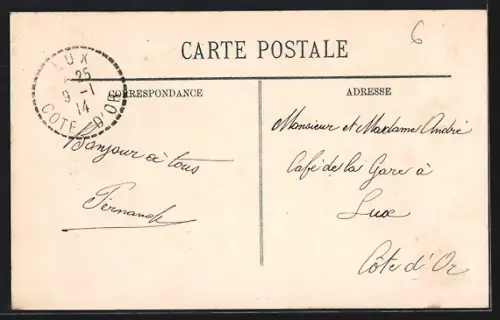 CARTE POSTALE
6
LUX
25
9 -1
14
COTE D'OR
CORRESPONDANCE
Bonjour à tous
Fernand
ADRESSE
Monsieur et Madame André
Café de la Gare à
Lux
Côte d'Or